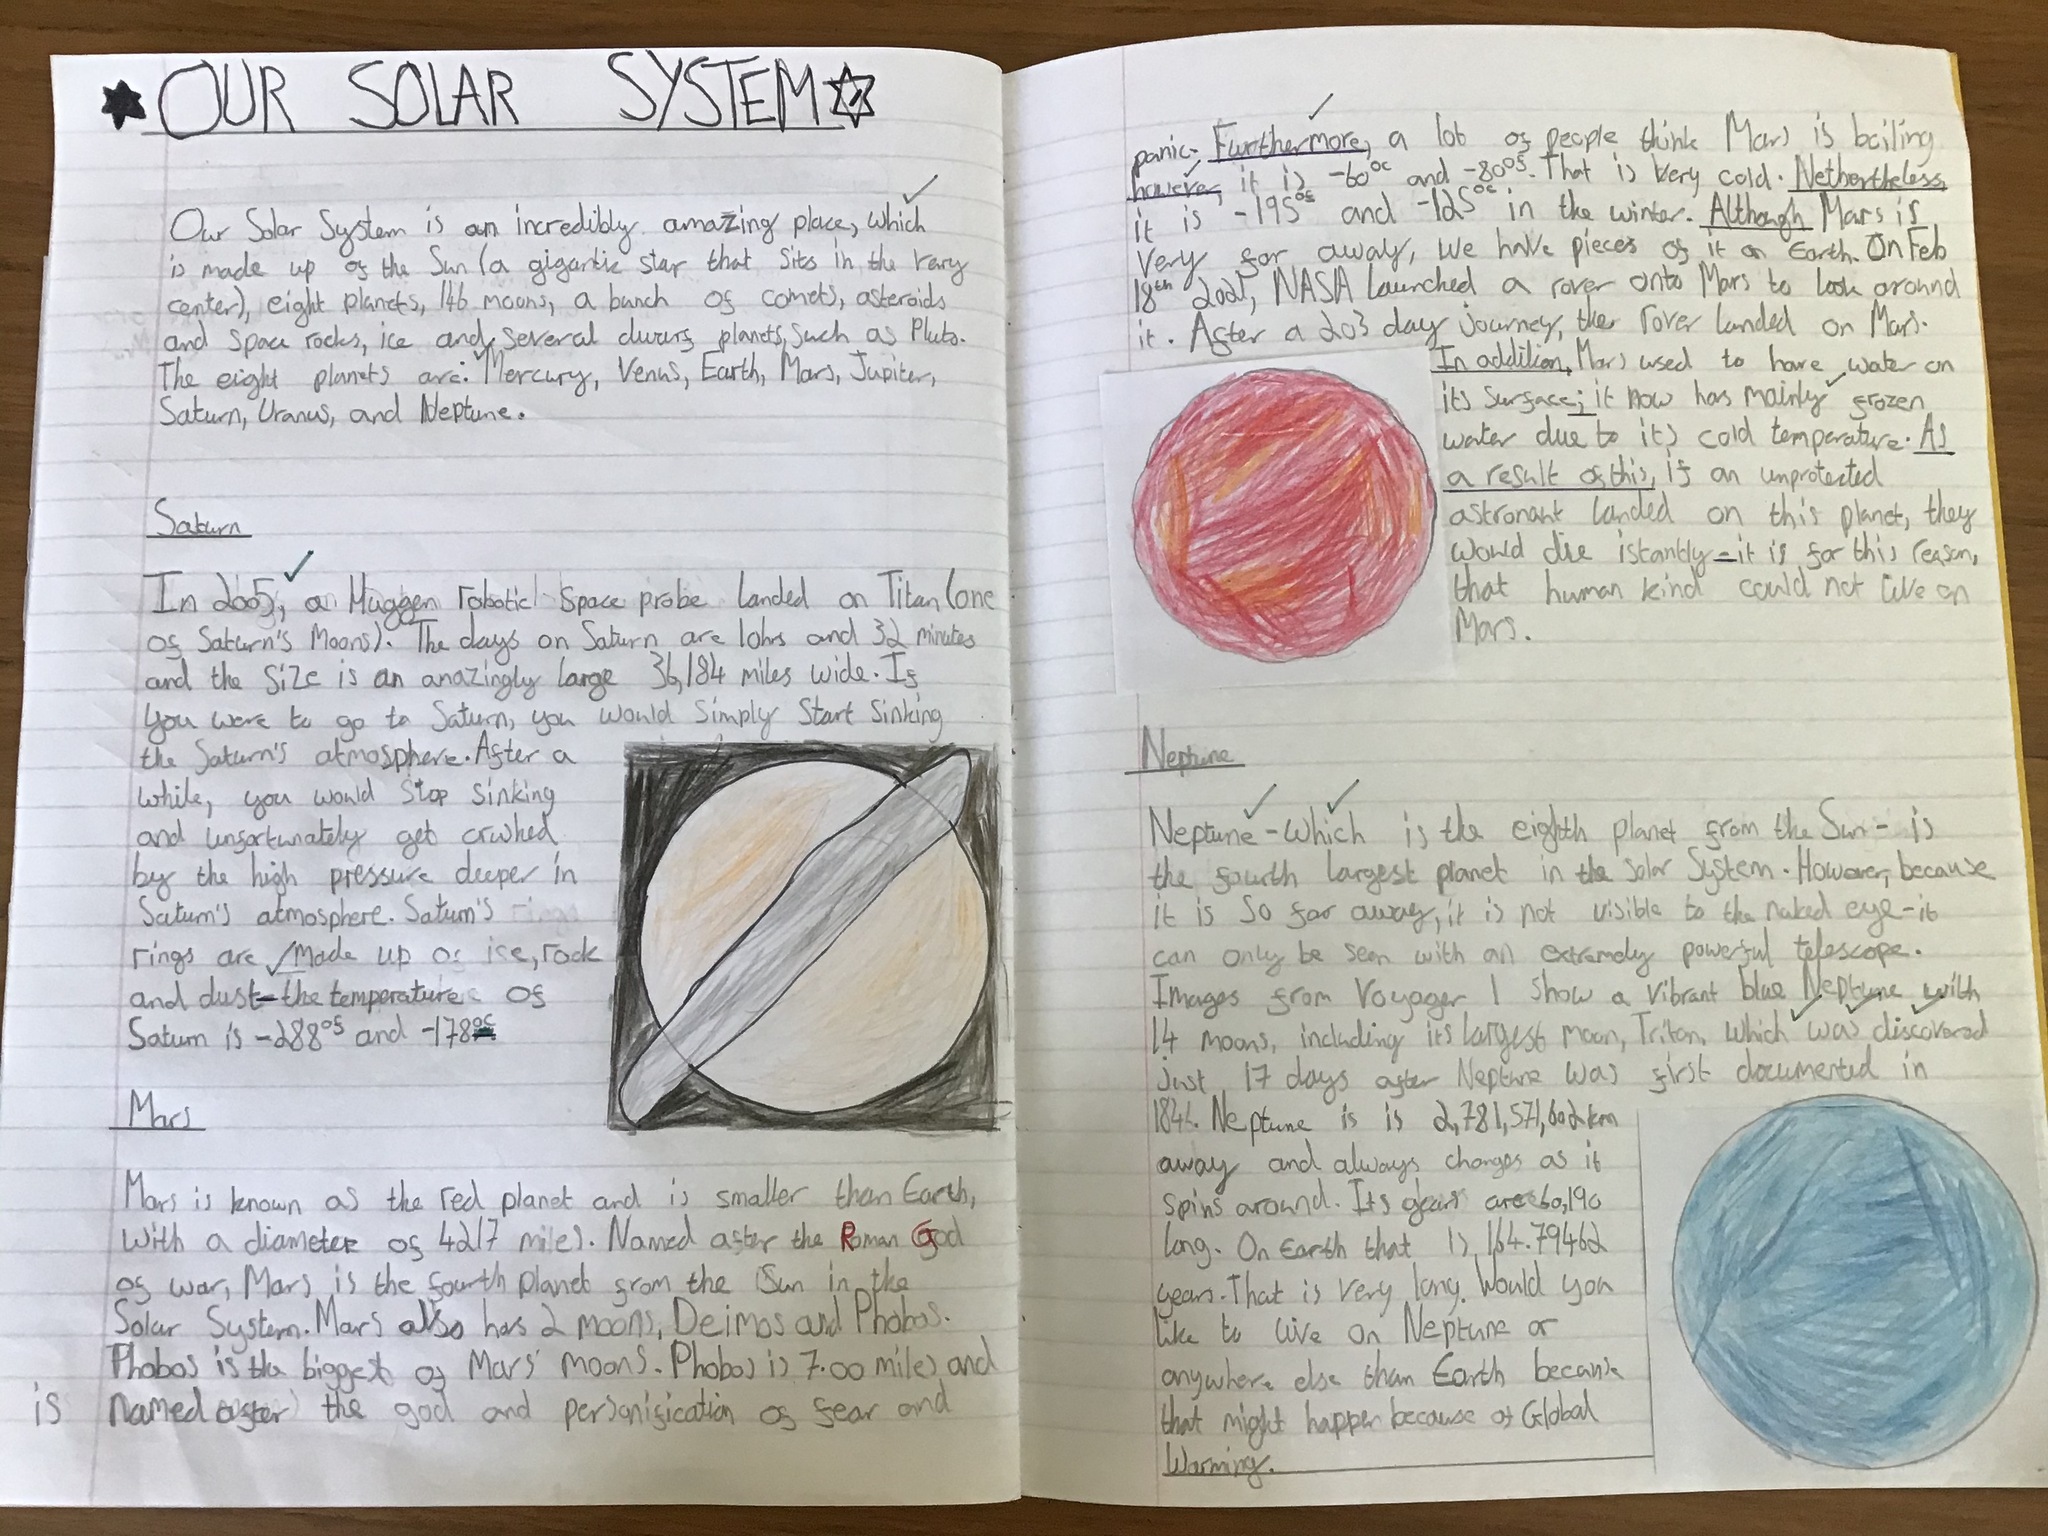 OUR SOLAR SYSTEM
Our Solar System is an incredibly amazing place, which
is made up of the Sun (a gigantic star that sits in the very
center), eight planets, 146 moons, a bunch of comets, asteroids
and space rocks, ice and several dwarf planets, such as Pluto.
The eight planets are: Mercury, Venus, Earth, Mars, Jupiter,
Saturn, Uranus, and Neptune.
Saturn
In 2005, a Huygen robotic space probe landed on Titan (one
of Saturn's Moons). The days on Saturn are 10hrs and 32 minutes
and the size is an amazingly large 36,184 miles wide. If
you were to go to Saturn, you would simply start sinking
the Saturn's atmosphere. After a
while, you would stop sinking
and unfortunately get crushed
by the high pressure deeper in
Saturn's atmosphere. Saturn's
rings are made up of ice, rock
and dust-the temperature of
Saturn is -288°f and -178°c
Mars
Mars is known as the red planet and is smaller than Earth,
with a diameter of 4217 miles. Named after the Roman God
of war, Mars is the fourth planet from the Sun in the
Solar System. Mars also has 2 moons, Deimos and Phobos.
Phobos is the biggest of Mars' moons. Phobos is 7.00 miles and
is named after the god and personification of fear and
panic. Furthermore, a lot of people think Mars is boiling
however, it is -60°c and -80°f. That is very cold. Nethertheless
it is -195°f and -125°c in the winter. Although Mars is
very far away, we have pieces of it on Earth. On Feb
18th 2021, NASA launched a rover onto Mars to look around
it. After a 203 day journey, the rover landed on Mars.
In addition, Mars used to have water on
its surface; it now has mainly frozen
water due to its cold temperature. As
a result of this, if an unprotected
astronant landed on this planet, they
would die istantly-it is for this reason,
that human kind could not live on
Mars.
Neptune
Neptune - which is the eighth planet from the Sun - is
the fourth largest planet in the Solar System. However, because
it is so far away, it is not visible to the naked eye-it
can only be seen with an extremely powerful telescope.
Images from Voyager 1 show a vibrant blue Neptune with
14 moons, including its largest moon, Triton, which was discovered
just 17 days after Neptune was first documented in
1846. Neptune is is 2,781,571,602km
away and always changes as it
spins around. Its years are 60,190
long. On Earth that is 164.79462
years. That is very long. Would you
like to live on Neptune or
anywhere else than Earth because
that might happen because of Global
Warming.